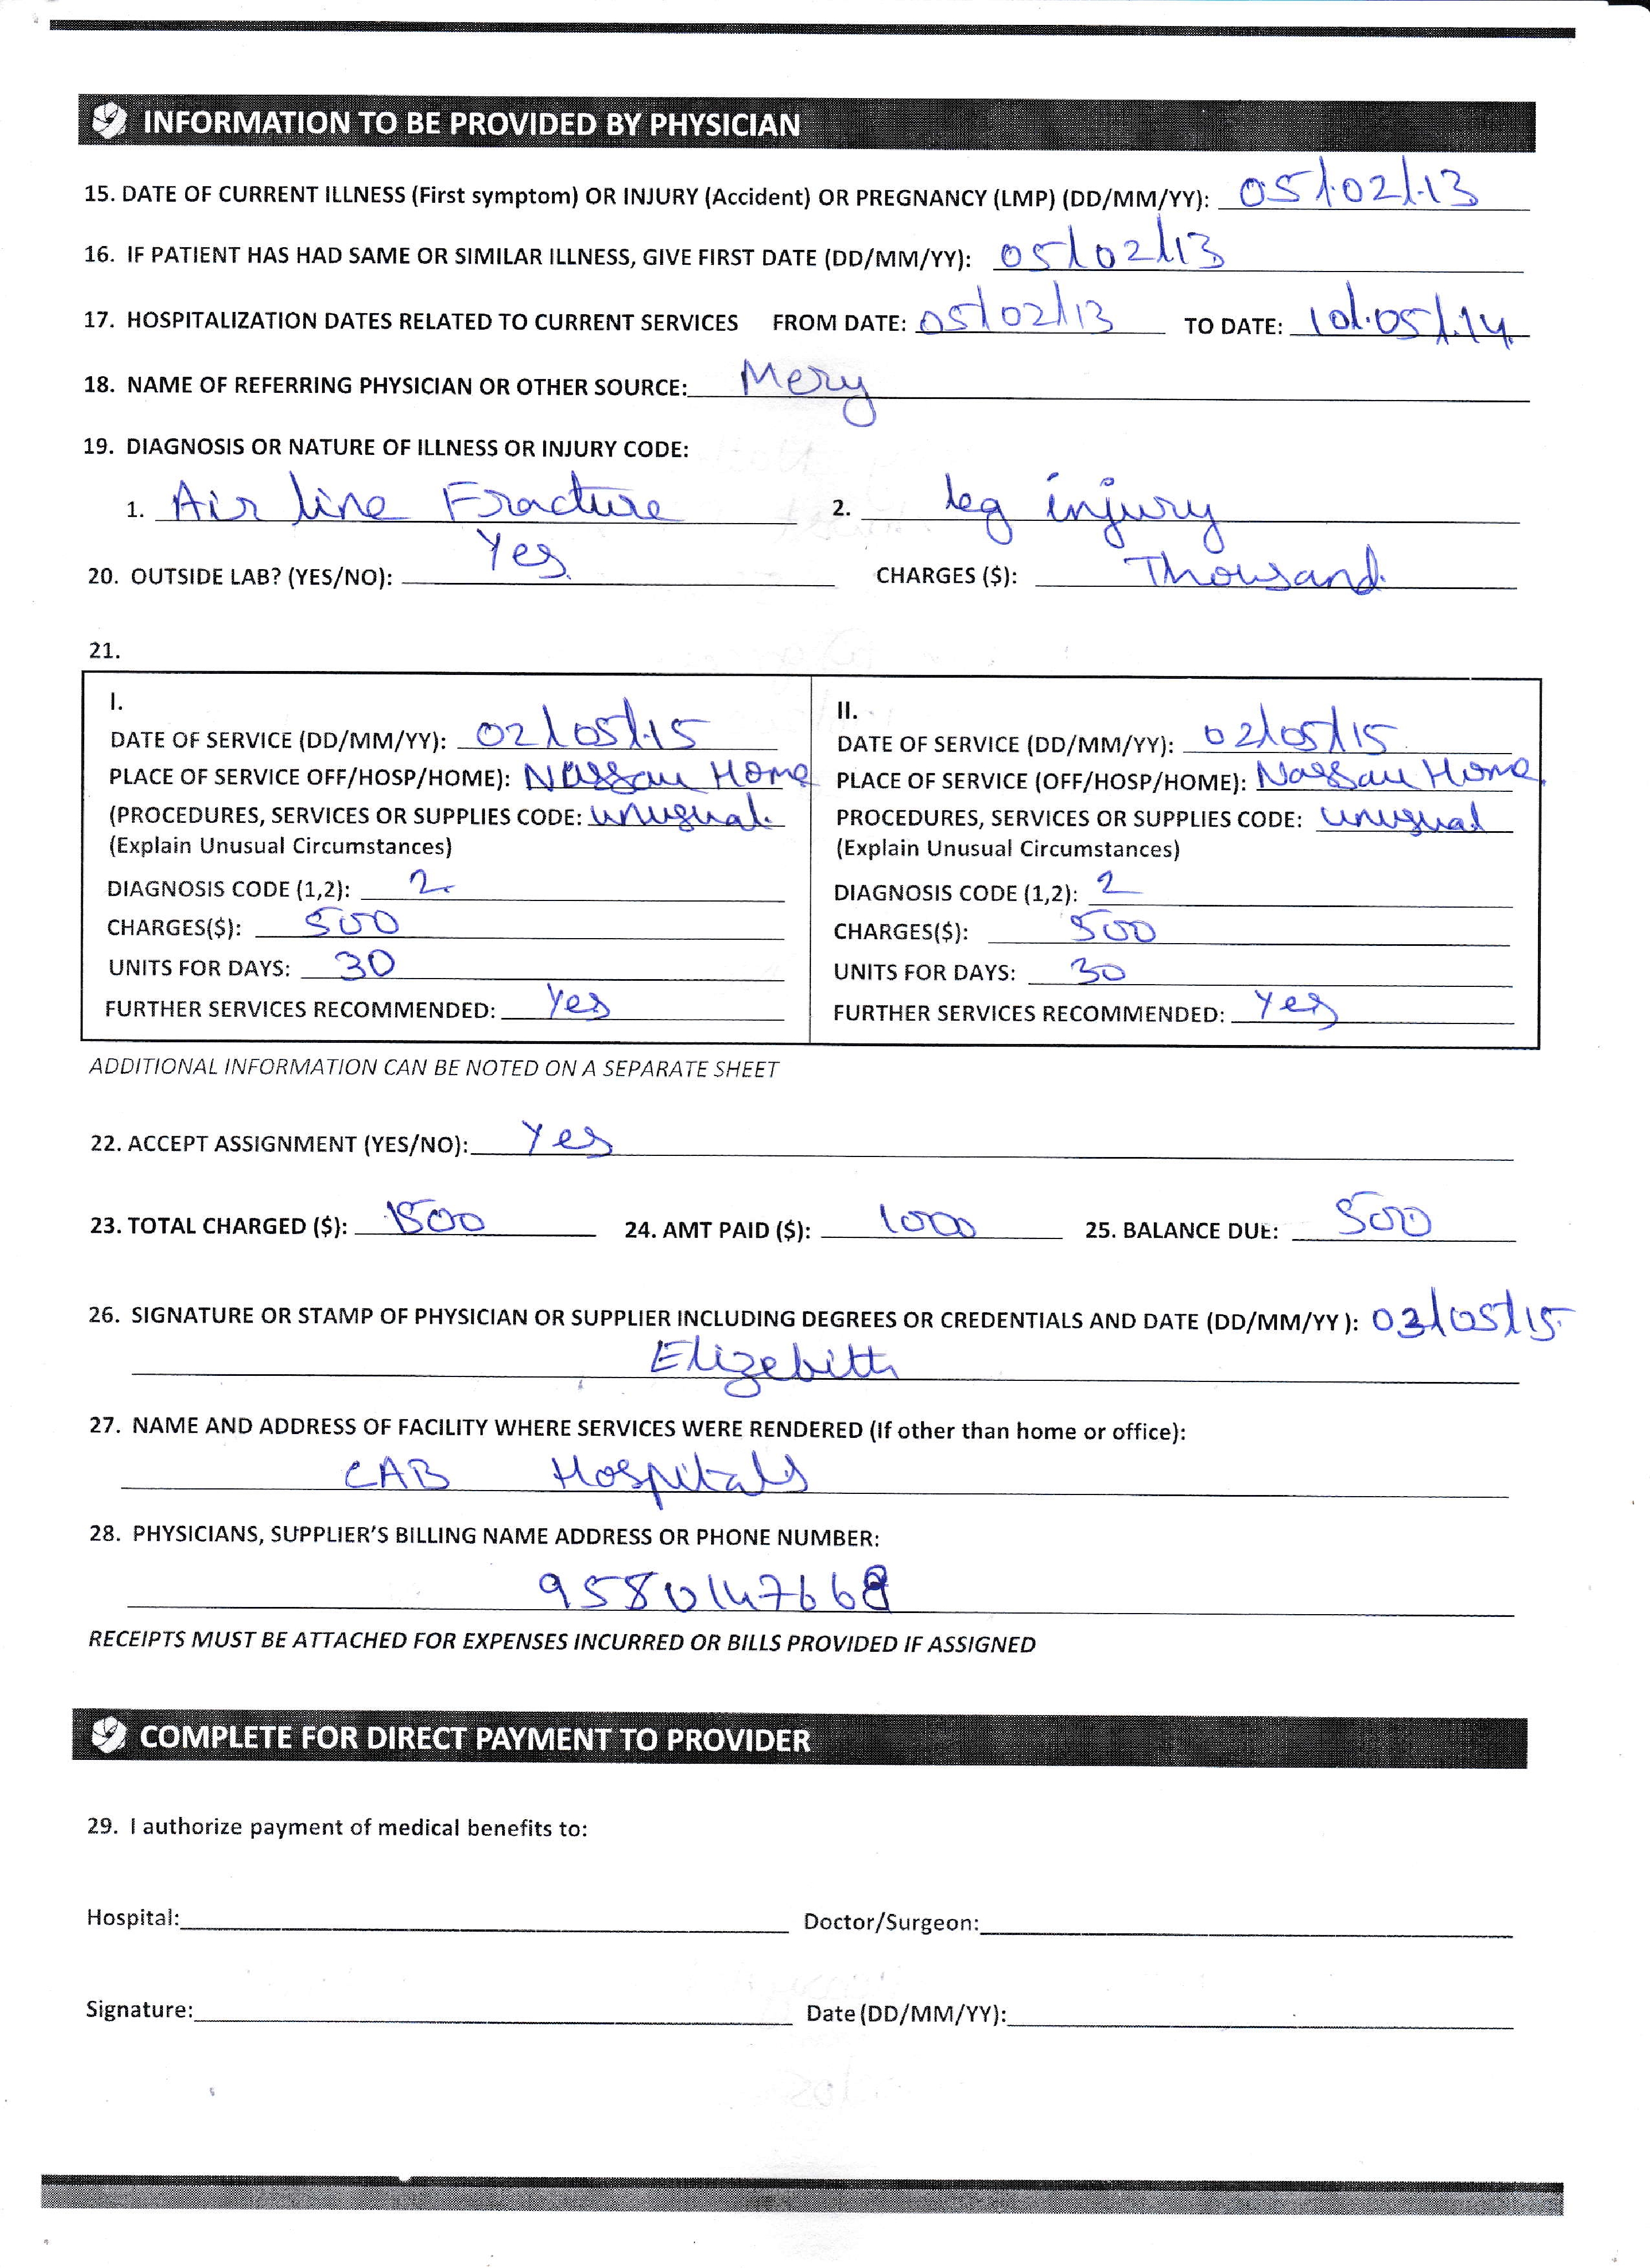 INFORMATION TO BE PROVIDED BY PHYSICIAN
15. DATE OF CURRENT ILLNESS (First symptom) OR INJURY (Accident) OR PREGNANCY (LMP) (DD/MM/YY): 05/02/13
16. IF PATIENT HAS HAD SAME OR SIMILAR ILLNESS, GIVE FIRST DATE (DD/MM/YY): 05/02/13
17. HOSPITALIZATION DATES RELATED TO CURRENT SERVICES FROM DATE: 05/02/13 TO DATE: 10/05/14
18. NAME OF REFERRING PHYSICIAN OR OTHER SOURCE: Mery
19. DIAGNOSIS OR NATURE OF ILLNESS OR INJURY CODE:
1. Air line Fracture 2. leg injury
20. OUTSIDE LAB? (YES/NO): Yes CHARGES ($): Thousand
21.
I.
DATE OF SERVICE (DD/MM/YY): 02/05/15
PLACE OF SERVICE OFF/HOSP/HOME): Nassau Home
(PROCEDURES, SERVICES OR SUPPLIES CODE: unusual
(Explain Unusual Circumstances)
DIAGNOSIS CODE (1,2): 2
CHARGES($): 500
UNITS FOR DAYS: 30
FURTHER SERVICES RECOMMENDED: Yes
II.
DATE OF SERVICE (DD/MM/YY): 02/05/15
PLACE OF SERVICE (OFF/HOSP/HOME): Nassau Home
PROCEDURES, SERVICES OR SUPPLIES CODE: unusual
(Explain Unusual Circumstances)
DIAGNOSIS CODE (1,2): 2
CHARGES($): 500
UNITS FOR DAYS: 30
FURTHER SERVICES RECOMMENDED: Yes
ADDITIONAL INFORMATION CAN BE NOTED ON A SEPARATE SHEET
22. ACCEPT ASSIGNMENT (YES/NO): Yes
23. TOTAL CHARGED ($): 1500 24. AMT PAID ($): 1000 25. BALANCE DUE: 500
26. SIGNATURE OR STAMP OF PHYSICIAN OR SUPPLIER INCLUDING DEGREES OR CREDENTIALS AND DATE (DD/MM/YY ): 03/05/15
Elizebith
27. NAME AND ADDRESS OF FACILITY WHERE SERVICES WERE RENDERED (If other than home or office):
CAB Hospitals
28. PHYSICIANS, SUPPLIER'S BILLING NAME ADDRESS OR PHONE NUMBER:
9580147668
RECEIPTS MUST BE ATTACHED FOR EXPENSES INCURRED OR BILLS PROVIDED IF ASSIGNED
COMPLETE FOR DIRECT PAYMENT TO PROVIDER
29. I authorize payment of medical benefits to:
Hospital: Doctor/Surgeon:
Signature: Date (DD/MM/YY):